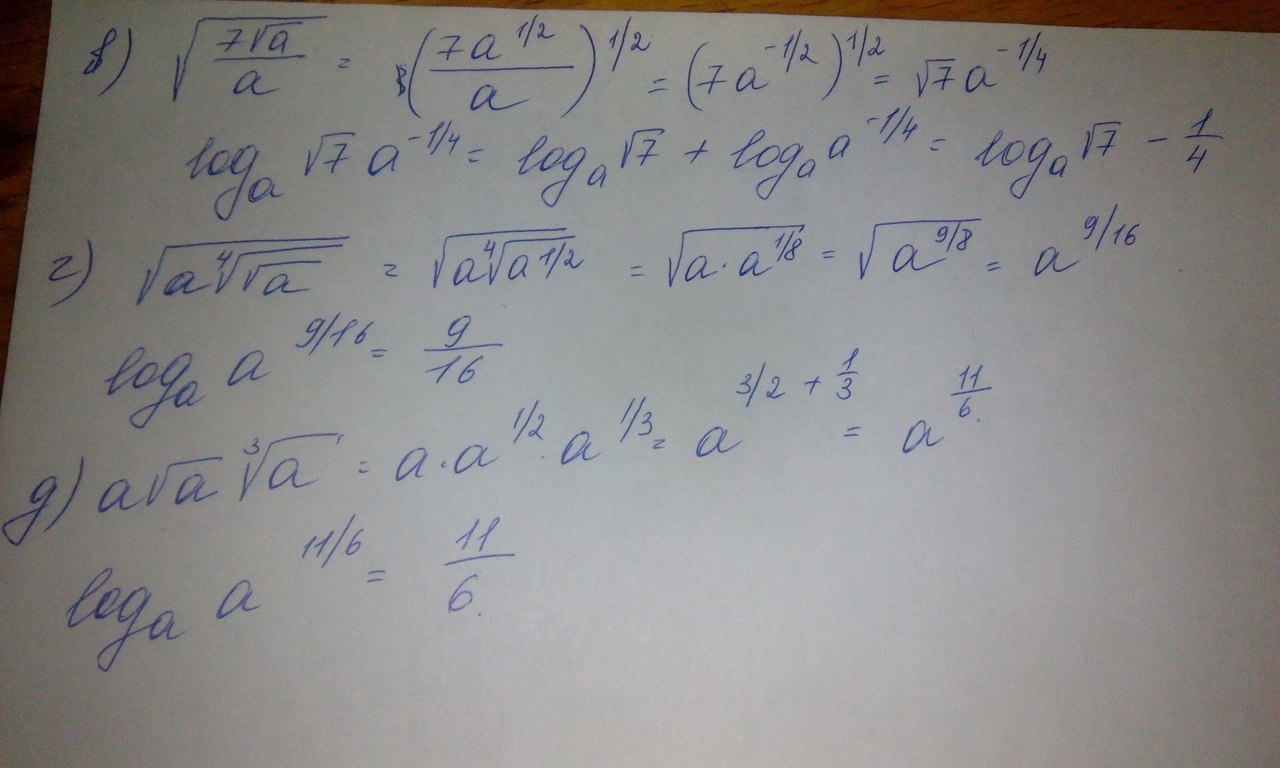 в) √(7√a/a) = (7a^1/2/a)^1/2 = (7a^-1/2)^1/2 = √7 a^-1/4
log_a √7 a^-1/4 = log_a √7 + log_a a^-1/4 = log_a √7 - 1/4
г) √(a ∜(√a)) = √(a ∜(a^1/2)) = √(a · a^1/8) = √(a^9/8) = a^9/16
log_a a^9/16 = 9/16
д) a√a ∛a = a · a^1/2 · a^1/3 = a^3/2 + 1/3 = a^11/6.
log_a a^11/6 = 11/6.